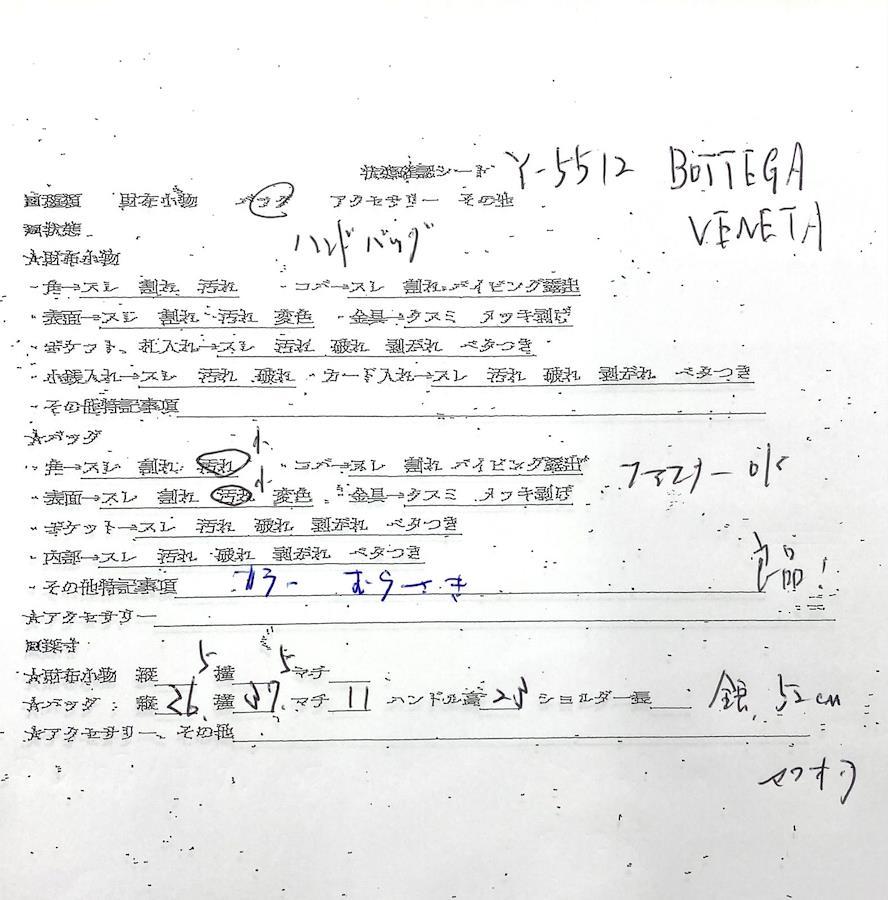 状態確認シート Y-5512 BOTTEGA
VENETA
□種類 財布小物 バッグ アクセサリー その他
□状態
ハンドバッグ
☆財布小物
・角→スレ 割れ 汚れ ・コバ→スレ 割れ パイピング露出
・表面→スレ 割れ 汚れ 変色 ・金具→クスミ メッキ剥げ
・ポケット、札入れ→スレ 汚れ 破れ 剥がれ ベタつき
・小銭入れ→スレ 汚れ 破れ ・カード入れ→スレ 汚れ 破れ 剥がれ ベタつき
・その他特記事項
☆バッグ
小
・角→スレ 割れ 汚れ ・コバ→スレ 割れ パイピング露出
ファスナー ok
小
・表面→スレ 割れ 汚れ 変色 ・金具→クスミ メッキ剥げ
・ポケット→スレ 汚れ 破れ 剥がれ ベタつき
・内部→スレ 汚れ 破れ 剥がれ ベタつき
良品!
・その他特記事項 カラー むらさき
☆アクセサリー
□採寸
☆財布小物 縦 横 マチ
5 5
☆バッグ: 縦 26. 横 37. マチ 11 ハンドル高 ショルダー長 52cm
☆アクセサリー、その他